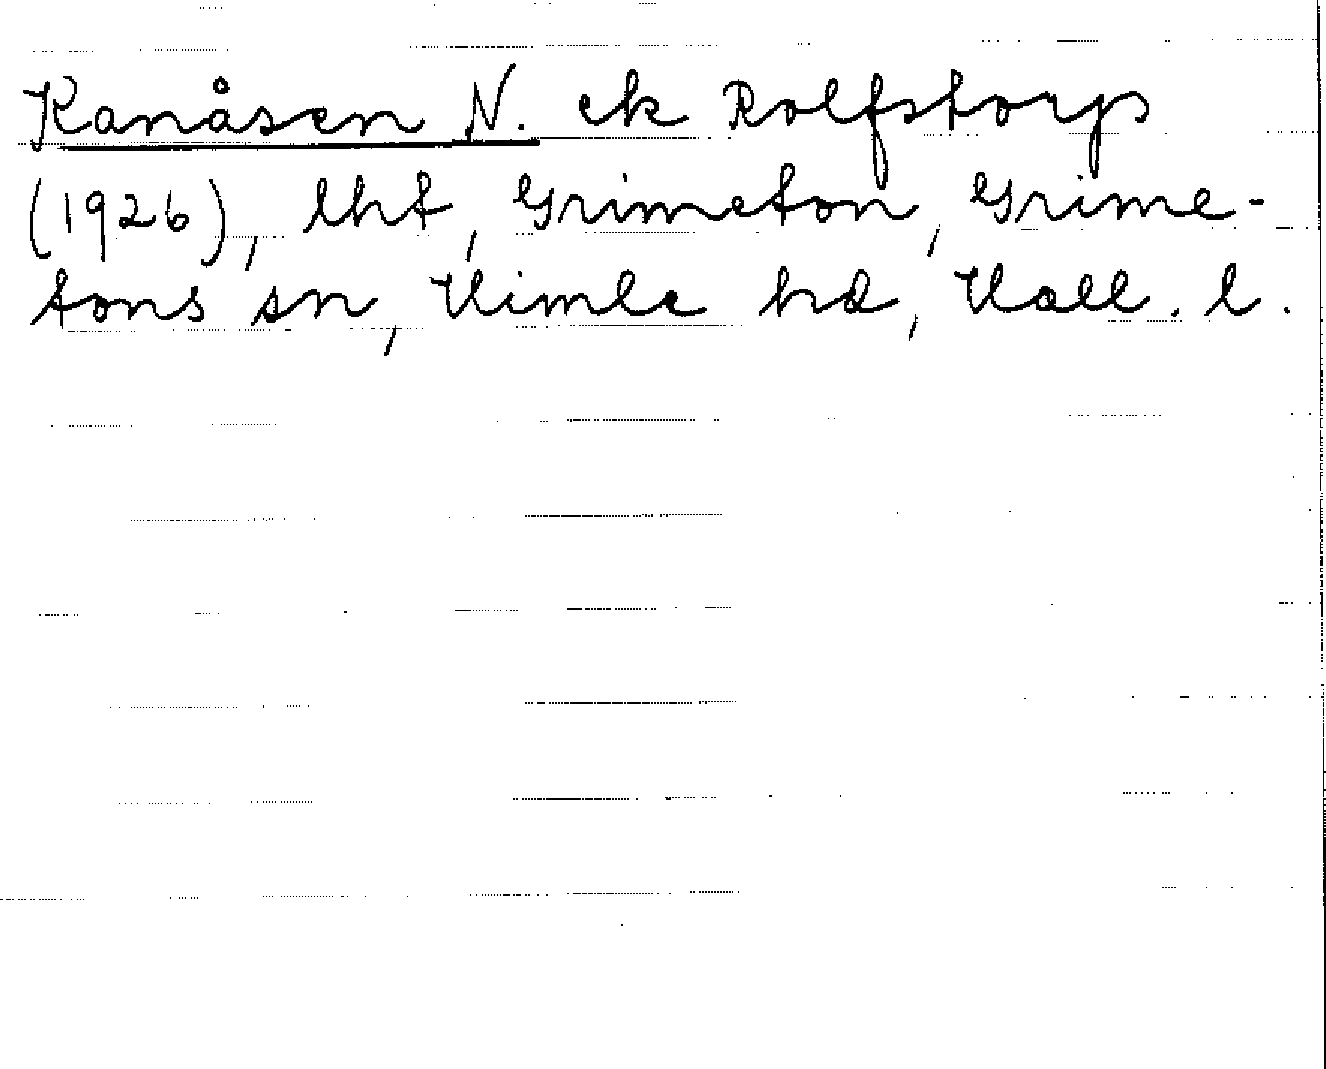 Kanåsen N. ek Rolfstorp
(1926), lht, Grimeton, Grime-
tons sn, Himle hd, Hall. l.